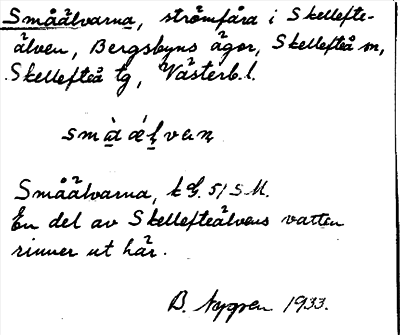 Småälvarna, strömfåra i Skellefte-
älven, Bergsbyns ägor, Skellefteå sn,
Skellefteå tg, Västerb. l.
Småälvarna, k G. 51 S.M.
En del av Skellefteälvens vatten
rinner ut här.
B. Nygren 1933.